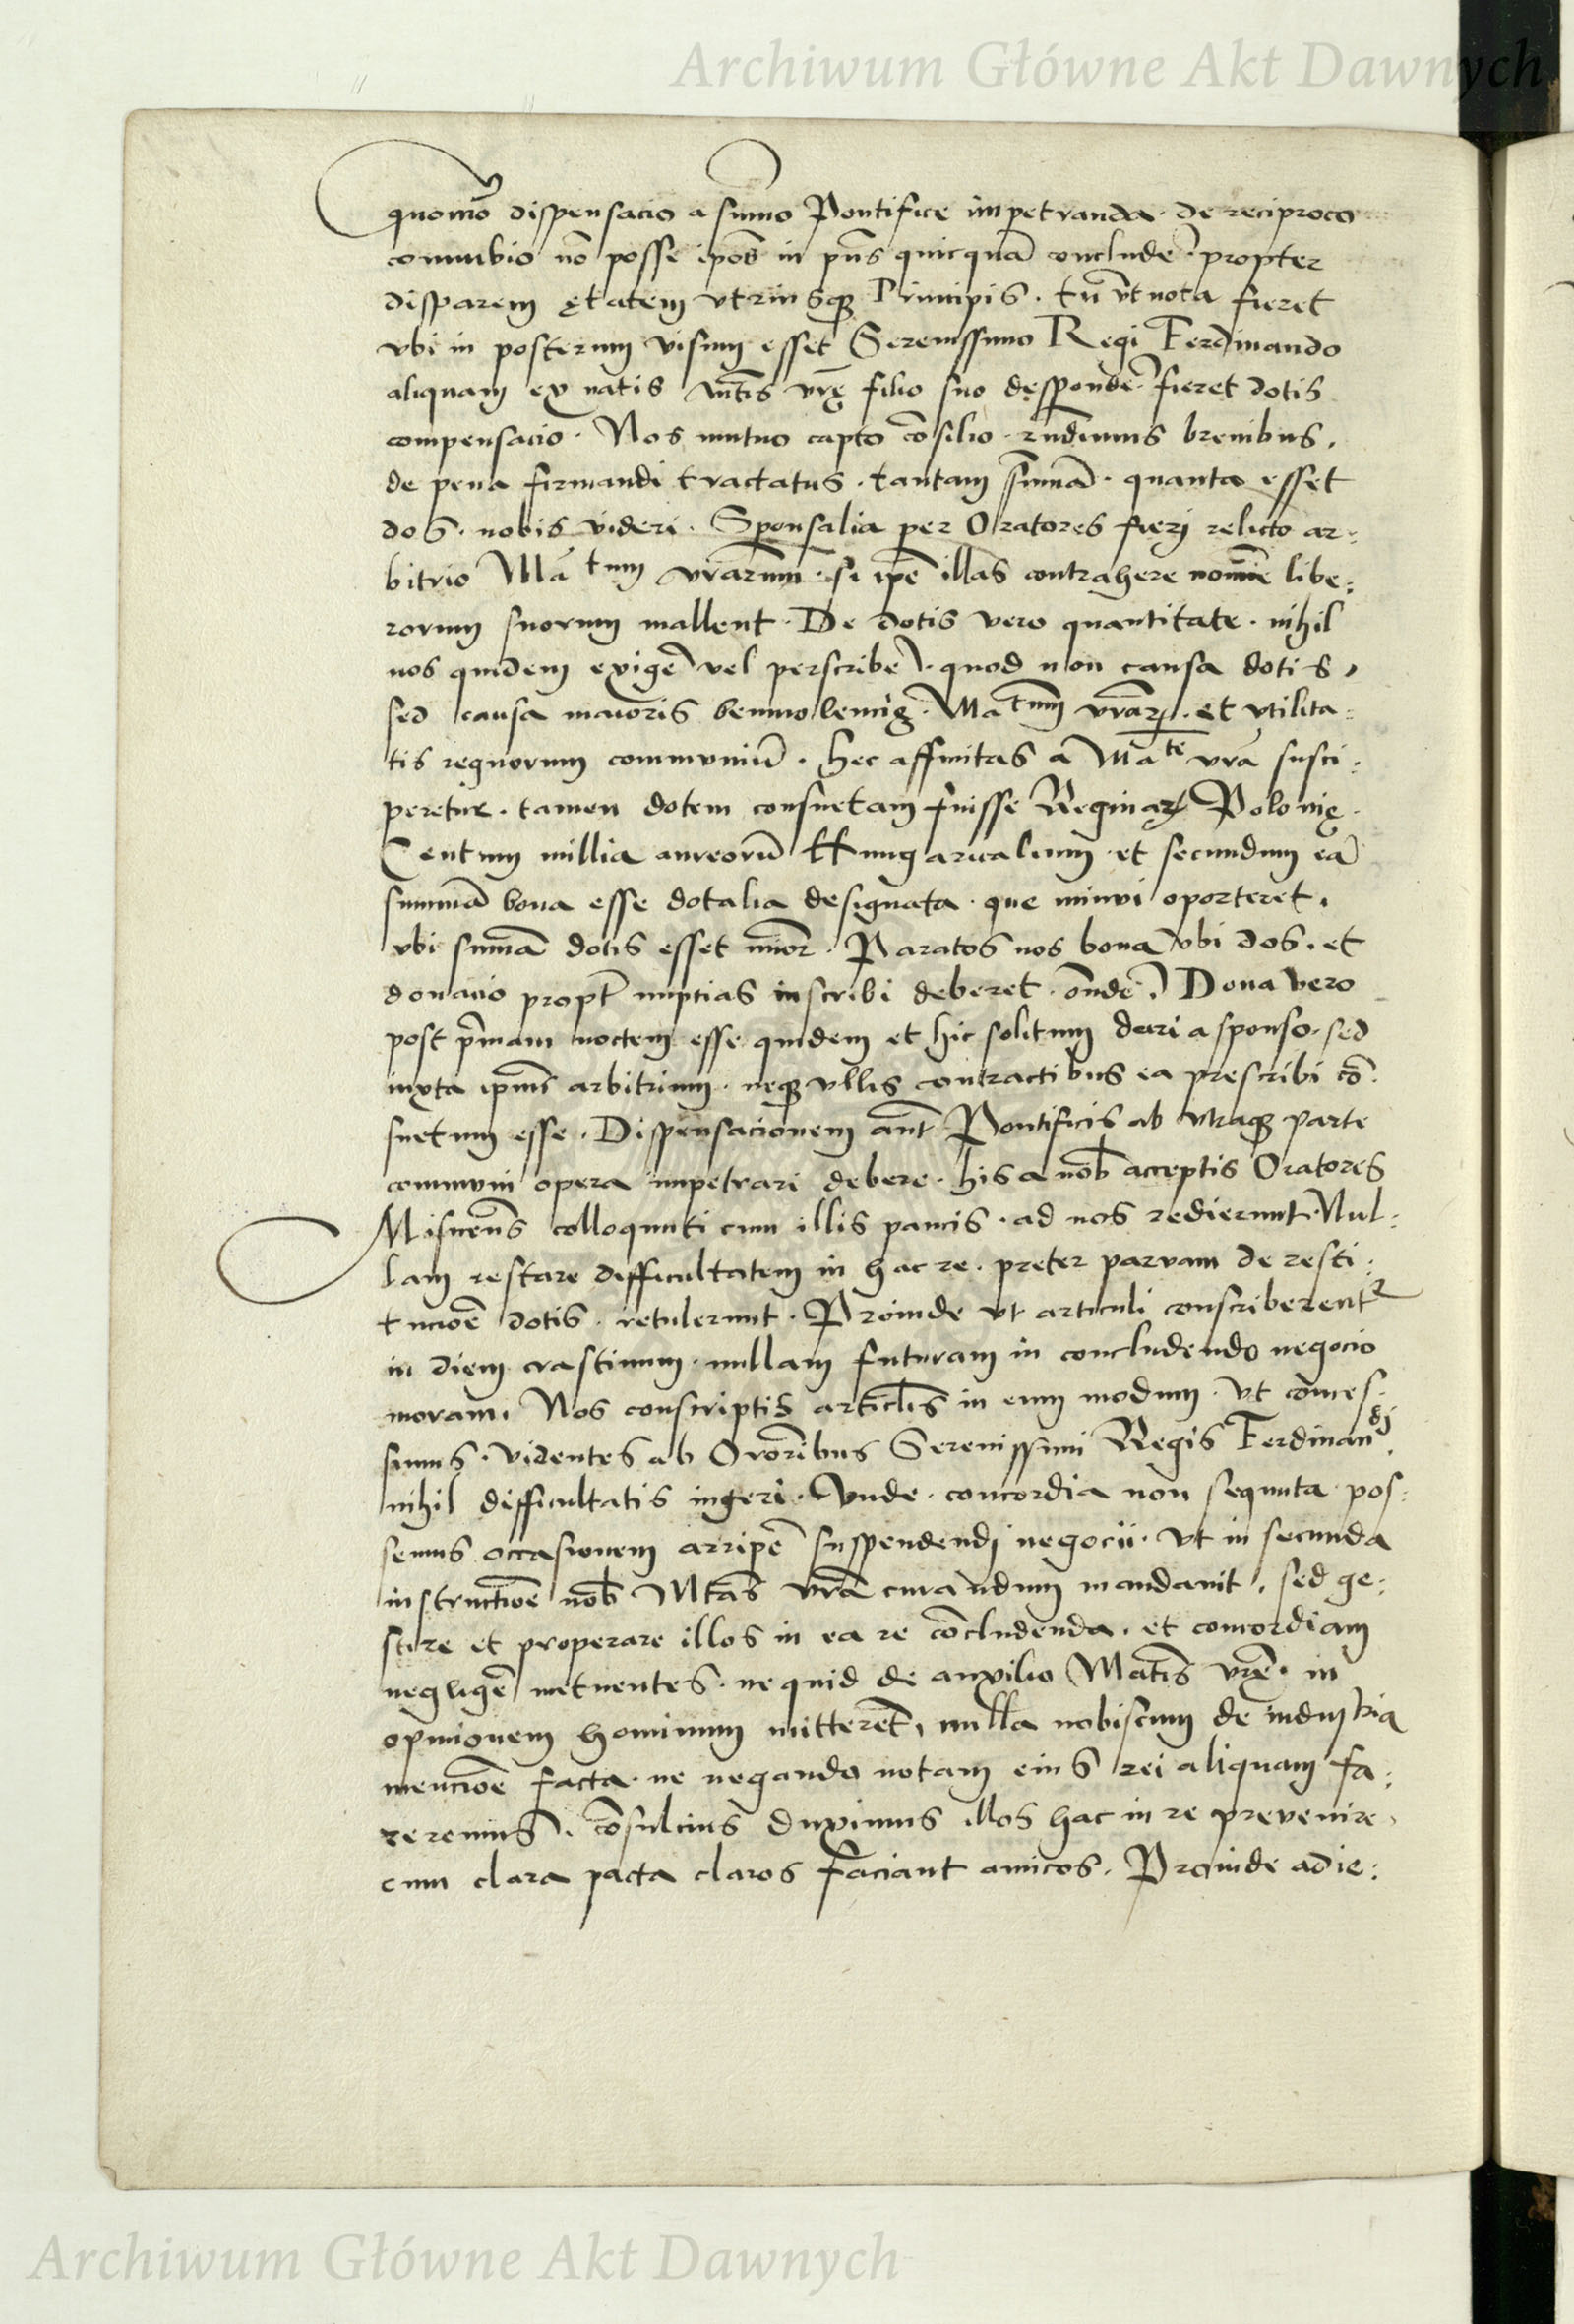 Archiwum Główne Akt Dawnych
quomō dispensacio a sūmo Pontifice impetranda. de reciproco
connubio nō posse ipos in pns quicquā conclude. propter
disparem ętatem vtriusq Principis. tn̄ vt nota fieret
vbi in posterum visum esset Serenissimo Regi Ferdinando
aliquam ex natis Mtis vrę filio suo desponde. fieret dotis
compensacio. Nos mutuo capto cōsilio. rndimus breuibus.
de pena firmandi tractatus. tantam sūmā. quanta esset
dos. nobis videri. Sponsalia per Oratores fierj relicto ar:
bitrio Matum vrarum. si ipē illas contrahere nomīe libe:
rorum suorum mallent. De dotis vero quantitate. nihil
nos quidem exigē vel perscribē. quod non causa dotis,
sed causa maioris beniuolencię. Matum vrarꝝ. et vtilita:
tis regnorum communiū. hec affinitas a Mate vra susci:
peretur. tamen dotem consuetam fuisse Reginarꝝ Polonię.
Centum millia aureorū Hungaricalium et secundum eā
summā bona esse dotalia designata. que minui oporteret.
vbi summā dotis esset mīor. Paratos nos bona vbi dos. et
donacio propt nuptias inscribi deberet. ōndē. Dona vero
post pmam noctem esse quidem et hic solitum dari a sponso. sed
iuxta ipius arbitrium. neq vllis contractibus ea prescribi cō.
suetum esse. Dispensacionem aut Pontificis ab vtraq parte
communi opera impetrari debere. his a nob acceptis Oratores
Misnens colloquuti cum illis paucis. ad nos redierunt. Nul:
lam restare difficultatem in hac re. preter paruam de resti:
tucioē dotis. retulerunt. Proinde vt articuli conscriberentr
in diem crastinum. nullam futuram in concludendo negocio
moram. Nos conscriptis articlis in eum modum. vt cōnces:
simus. videntes ab Ororibus Serenissimi Regis Ferdinandj.
nihil difficultatis ingeri. vnde. concordia non sequuta pos:
semus occasionem arripē suspendendj negocii. vt in secunda
instructioē nob Mtas vra curandum mandauit. sed ge:
stire et properare illos in ea re cōcludenda. et concordiam
negligē metuentes. ne quid de auxilio Matis vrę. in
opinionem hominum mitteret, nulla nobiscum de industria
mencioē facta. ne negando notam eius rei aliquam fa:
ceremus. cōsulcius duximus illos hac in re prevenire.
cum clara pacta claros faciant amicos. Proinde adie:
Archiwum Główne Akt Dawnych